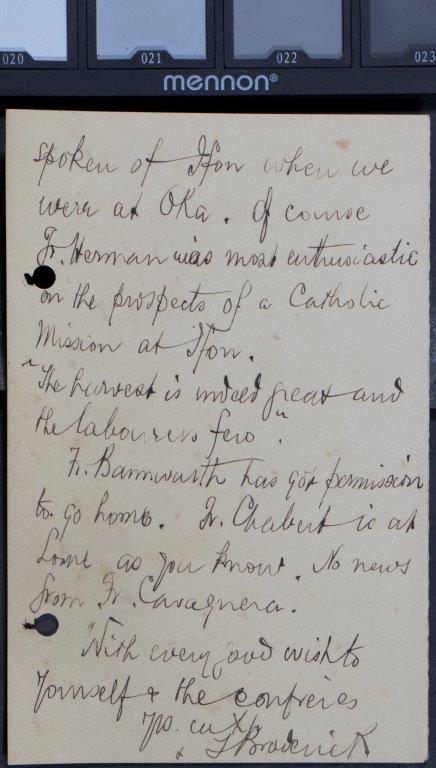 020 021 022 023
mennon®
spoken of Ifon when we
were at Oka. Of course
Fr. Herman was most enthusiastic
on the prospects of a Catholic
Mission at Ifon.
"The harvest is indeed great and
the labourers few".
Fr. Bannwarth has got permission
to go home. Fr. Chabert is at
home as you know. No news
from Fr. Cavagnera.
With every good wish to
yourself & the confreres
Yrs. in Xto
T Broderick